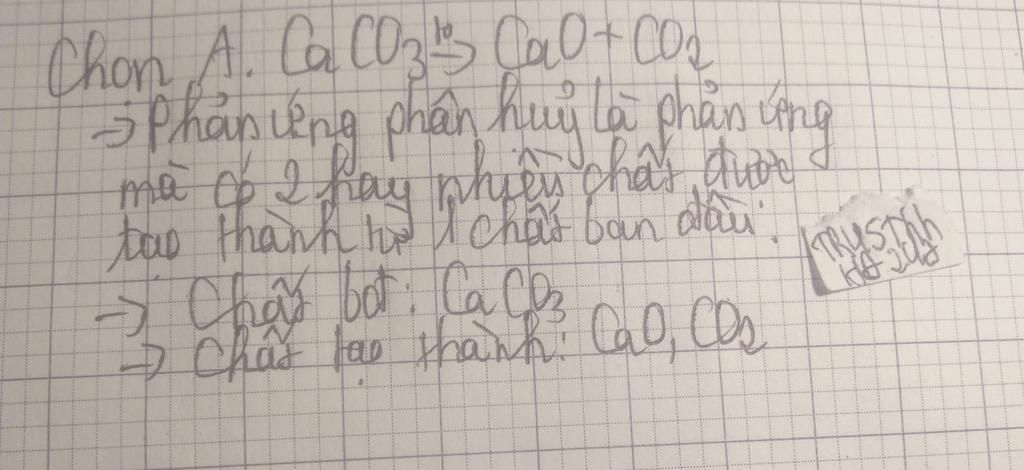 Chọn A. CaCO3 t° → CaO + CO2
→ Phản ứng phân huỷ là phản ứng
mà có 2 hay nhiều chất được
tạo thành từ 1 chất ban đầu.
→ Chất bđ: CaCO3
→ Chất tạo thành: CaO, CO2